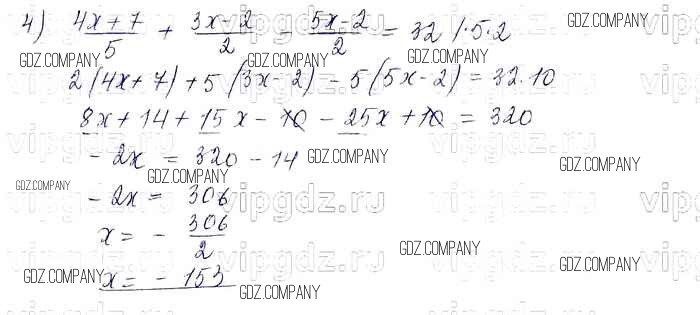 4) (4x+7)/5 + (3x-2)/2 - (5x-2)/2 = 32 /·5·2
2(4x+7)+5(3x-2)-5(5x-2)=32·10
8x+14+15x-10-25x+10=320
-2x=320-14
-2x=306
x=-306/2
x=-153
GDZ.COMPANY
GDZ.COMPANY
GDZ.COMPANY
GDZ.COMPANY
GDZ.COMPANY
GDZ.COMPANY
GDZ.COMPANY
GDZ.COMPANY
GDZ.COMPANY
GDZ.COMPANY
vipgdz.ru
vipgdz.ru
vipgdz.ru
vipgdz.ru